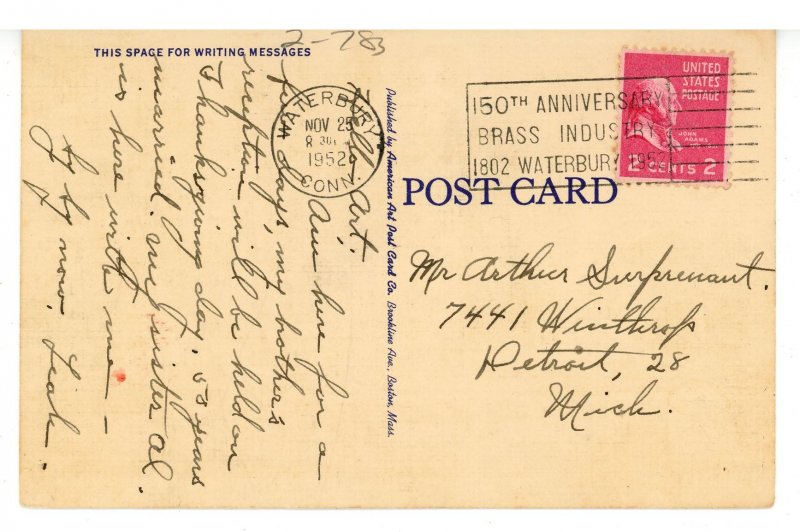 2-783
THIS SPACE FOR WRITING MESSAGES
Hello Art.
Am here for a
few days, my mother's
reception will be held on
Thanksgiving day. 53 years
married. my sister al.
is here with me —
by by now. Leah.
WATERBURY
NOV 25
8 30
1952
CONN.
Published by American Art Post Card Co. Brookline Ave., Boston, Mass.
150TH ANNIVERSARY
BRASS INDUSTRY
1802 WATERBURY 195
UNITED
STATES
POSTAGE
JOHN
ADAMS
2 CENTS 2
POST CARD
Mr Arthur Surprenant.
7441 Winthrop
Detroit, 28
Mich.